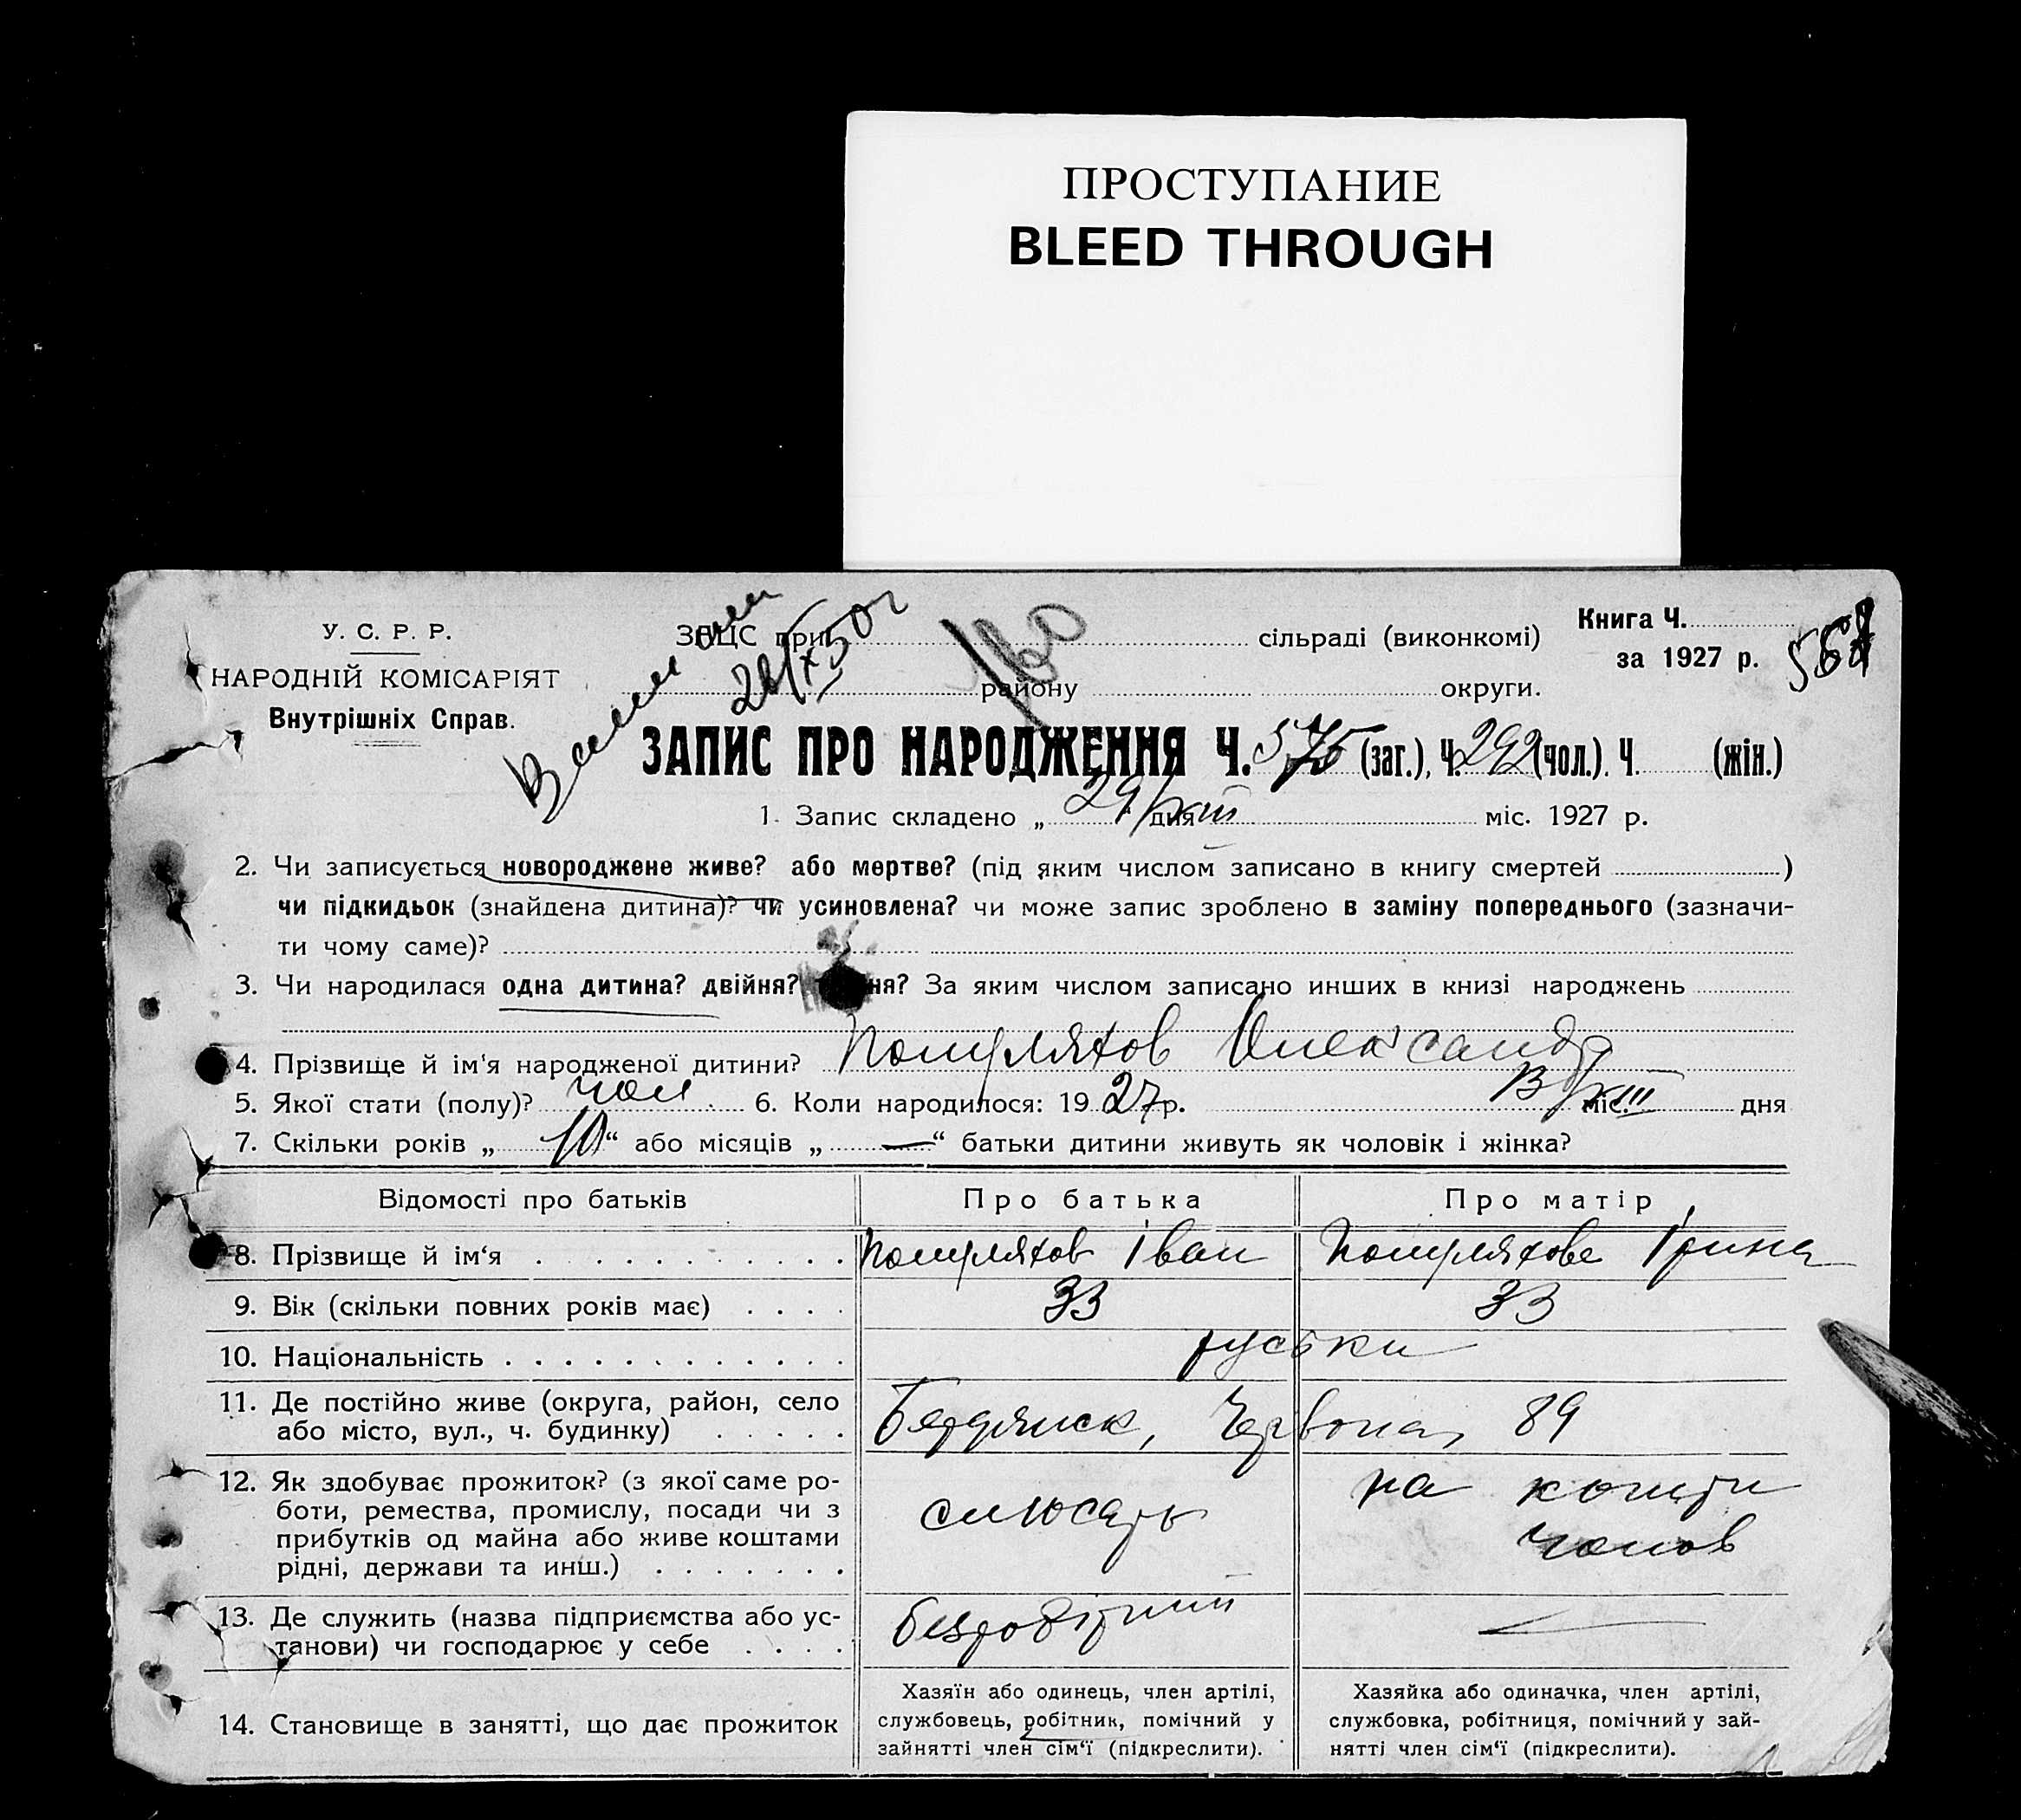 ПРОСТУПАНИЕ
BLEED THROUGH
У. С. Р. Р.
НАРОДНІЙ КОМІСАРІЯТ
Внутрішніх Справ.
ЗАЦС при сільраді (виконкомі)
району округи.
Книга Ч.
за 1927 р.
160
ЗАПИС ПРО НАРОДЖЕННЯ Ч. 575 (заг.), Ч. 292 (чол.). Ч. (жін.)
1. Запис складено „ 29/XII дня міс. 1927 р.
2. Чи записується новороджене живе? або мертве? (під яким числом записано в книгу смертей )
чи підкидьок (знайдена дитина)? чи усиновлена? чи може запис зроблено в заміну попереднього (зазначи-
ти чому саме)?
3. Чи народилася одна дитина? двійня? За яким числом записано инших в книзі народжень
4. Прізвище й ім'я народженої дитини? Олександр
5. Якої стати (полу)? чол. 6. Коли народилося: 19 27 р. міс. дня
7. Скільки років „ 10 “ або місяців „ — “ батьки дитини живуть як чоловік і жінка?
Відомості про батьків Про батька Про матір
8. Прізвище й ім‘я Іван Ірина
9. Вік (скільки повних років має) 33 33
10. Національність руськи
11. Де постійно живе (округа, район, село
або місто, вул., ч. будинку) Бердянск, Червона, 89
12. Як здобуває прожиток? (з якої саме ро-
боти, ремества, промислу, посади чи з
прибутків од майна або живе коштами
рідні, держави та инш.)
слюсарь
на кошти
чолов
13. Де служить (назва підприємства або ус-
танови) чи господарює у себе
безробітний —
14. Становище в занятті, що дає прожиток
Хазяїн або одинець, член артілі,
службовець, робітник, помічний у
зайнятті член сім‘ї (підкреслити).
Хазяйка або одиначка, член артілі,
службовка, робітниця, помічний у зай-
нятті член сім‘ї (підкреслити).